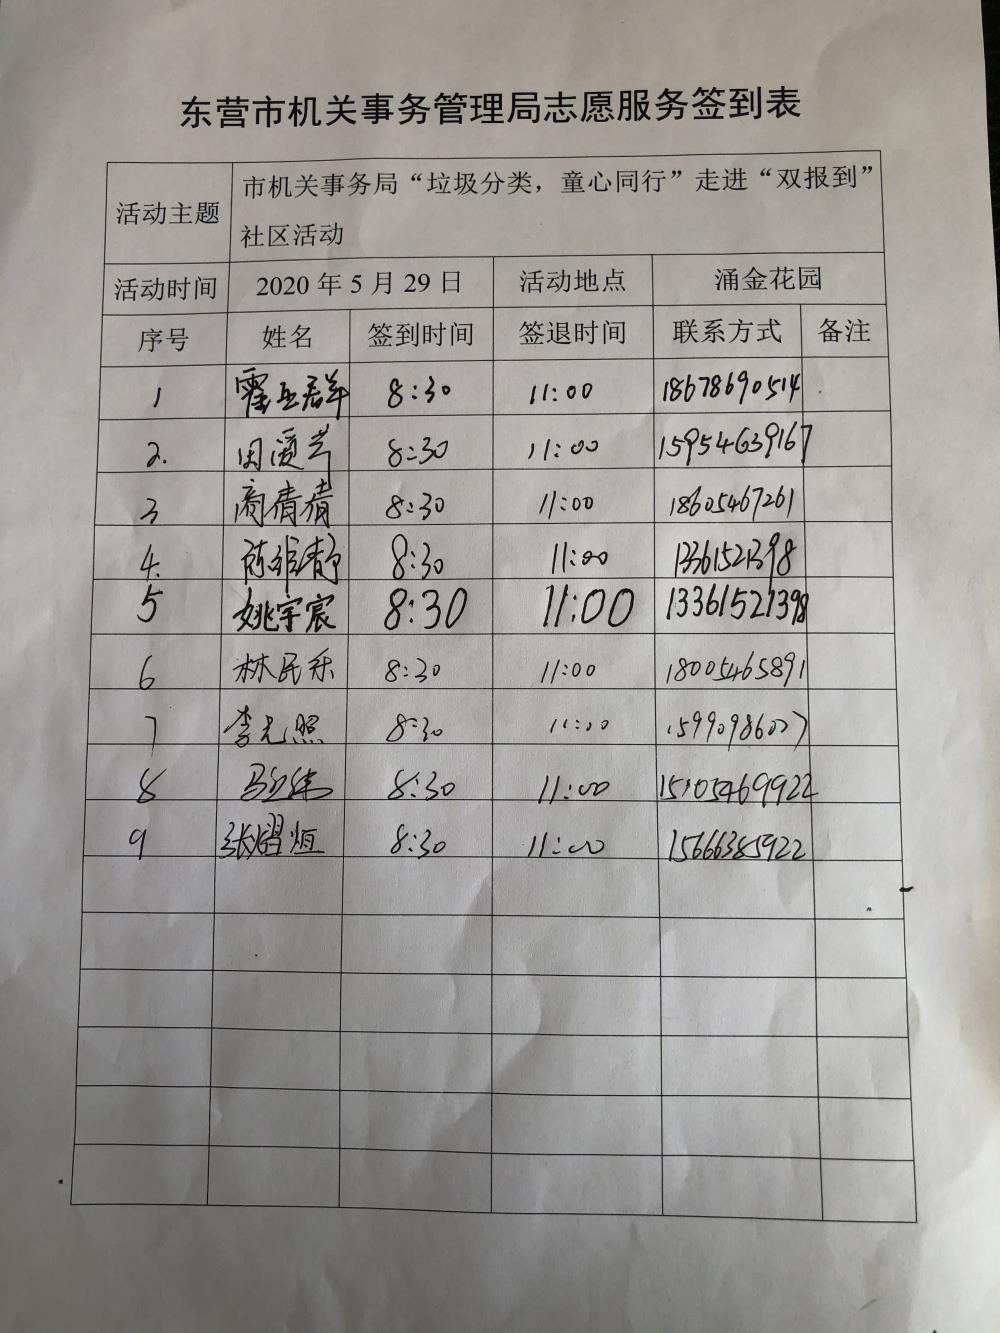 东营市机关事务管理局志愿服务签到表
活动主题 市机关事务局“垃圾分类，童心同行”走进“双报到”
社区活动
活动时间 2020 年 5 月 29 日 活动地点 涌金花园
序号 姓名 签到时间 签退时间 联系方式 备注
1 8:30 11:00 18678690514
2. 8:30 11:00 15954639167
3 商倩倩 8:30 11:00 18605467261
4. 8:30 11:00 13361521398
5 姚宇宸 8:30 11:00 13361521398
6 林民乐 8:30 11:00 18005465891
7 李光照 8:30 11:00 15990986007
8 8:30 11:00 15105469922
9 8:30 11:00 15666385922